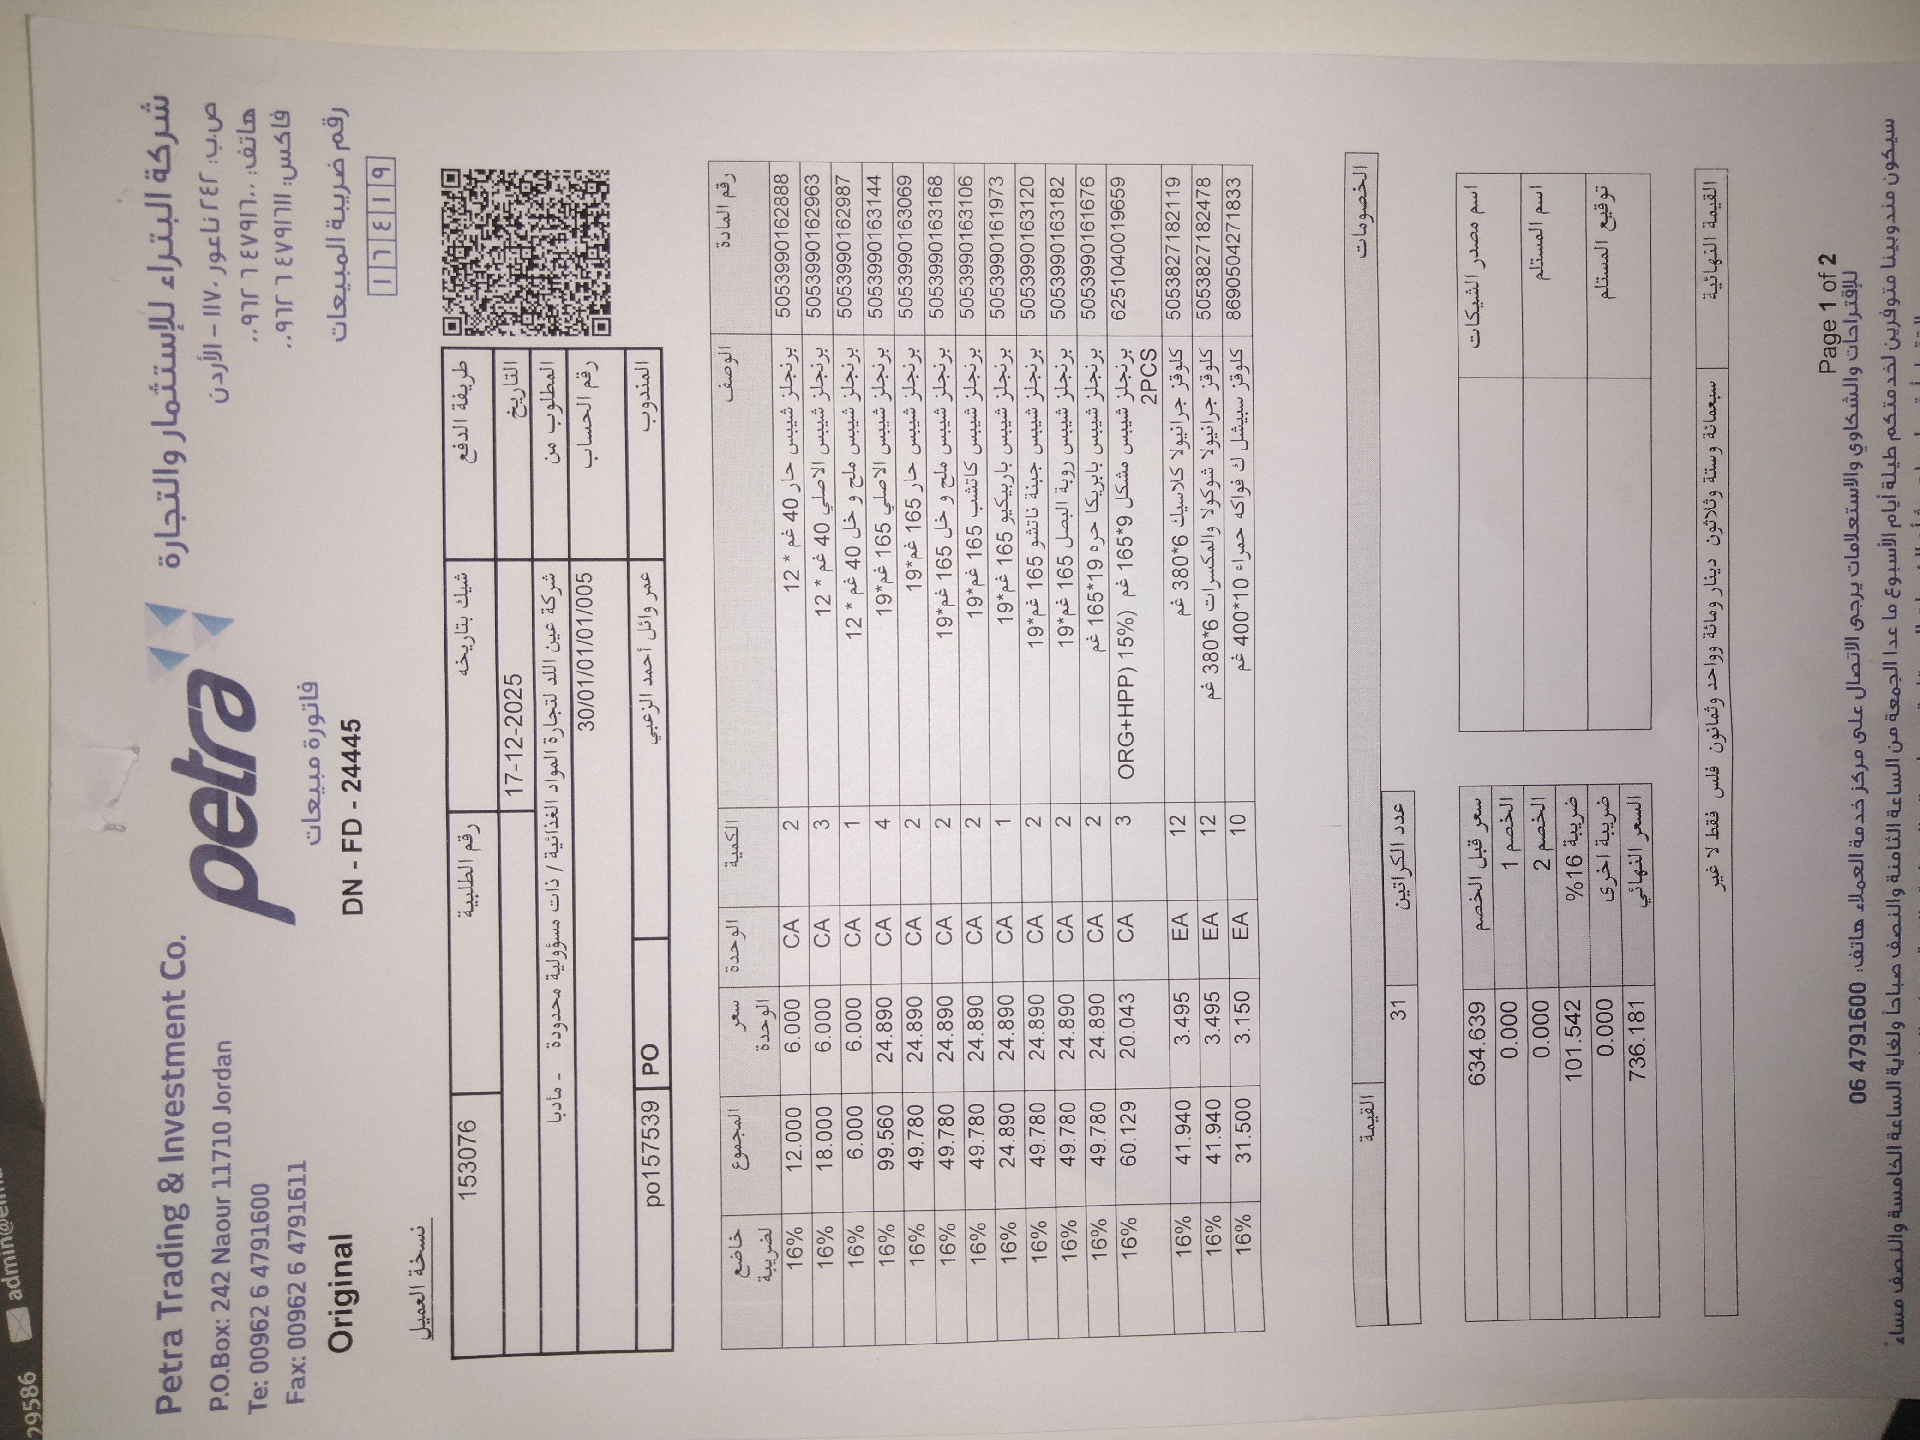 29586
admin@
Petra Trading & Investment Co.
P.O.Box: 242 Naour 11710 Jordan
Te: 00962 6 4791600
Fax: 00962 6 4791611
petra
شركة البتراء للإستثمار والتجارة
ص.ب: ٢٤٢ ناعور ١١٧١٠ - الأردن
هاتف: ٤٧٩١٦٠٠ ٦ ٠٠٩٦٢
فاكس: ٤٧٩١٦١١ ٦ ٠٠٩٦٢
رقم ضريبة المبيعات
١ ٦ ٤ ١ ٩
فاتورة مبيعات
Original
DN - FD - 24445
نسخة العميل
طريقة الدفع شيك بتاريخه رقم الطلبية 153076
التاريخ 17-12-2025
المطلوب من شركة عين اللد لتجارة المواد الغذائية / ذات مسؤولية محدودة - مأدبا
رقم الحساب 30/01/01/01/005
المندوب عمر وائل أحمد الزعبي PO po157539
رقم المادة الوصف الكمية الوحدة سعر الوحدة المجموع خاضع لضريبة
5053990162888 برنجلز شيبس حار 40 غم * 12 2 CA 6.000 12.000 16%
5053990162963 برنجلز شيبس الاصلي 40 غم * 12 3 CA 6.000 18.000 16%
5053990162987 برنجلز شيبس ملح و خل 40 غم * 12 1 CA 6.000 6.000 16%
5053990163144 برنجلز شيبس الاصلي 165 غم*19 4 CA 24.890 99.560 16%
5053990163069 برنجلز شيبس حار 165 غم*19 2 CA 24.890 49.780 16%
5053990163168 برنجلز شيبس ملح و خل 165 غم*19 2 CA 24.890 49.780 16%
5053990163106 برنجلز شيبس كاتشب 165 غم*19 2 CA 24.890 49.780 16%
5053990161973 برنجلز شيبس باربيكيو 165 غم*19 1 CA 24.890 24.890 16%
5053990163120 برنجلز شيبس جبنة ناتشو 165 غم*19 2 CA 24.890 49.780 16%
5053990163182 برنجلز شيبس روبة البصل 165 غم*19 2 CA 24.890 49.780 16%
5053990161676 برنجلز شيبس بابريكا حره 19*165 غم 2 CA 24.890 49.780 16%
6251040019659 برنجلز شيبس مشكل 9*165 غم (ORG+HPP) 15% 3 CA 20.043 60.129 16%
2PCS
5053827182119 كلوقز جرانيولا كلاسيك 6*380 غم 12 EA 3.495 41.940 16%
5053827182478 كلوقز جرانيولا شوكولا والمكسرات 6*380 غم 12 EA 3.495 41.940 16%
8690504271833 كلوقز سبيشل ك فواكه حمراء 10*400 غم 10 EA 3.150 31.500 16%
الخصومات القيمة
عدد الكراتين 31
سعر قبل الخصم 634.639
الخصم 1 0.000
الخصم 2 0.000
ضريبة 16% 101.542
ضريبة اخرى 0.000
السعر النهائي 736.181
اسم مصدر الشيكات
اسم المستلم
توقيع المستلم
القيمة النهائية سبعمائة وستة وثلاثون دينار ومائة وواحد وثمانون فلس فقط لا غير
Page 1 of 2
للإقتراحات والشكاوي والاستعلامات يرجى الاتصال على مركز خدمة العملاء هاتف: 06 4791600
سيكون مندوبينا متوفرين لخدمتكم طيلة أيام الأسبوع ما عدا الجمعة من الساعة الثامنة والنصف صباحاً ولغاية الساعة الخامسة والنصف مساءً